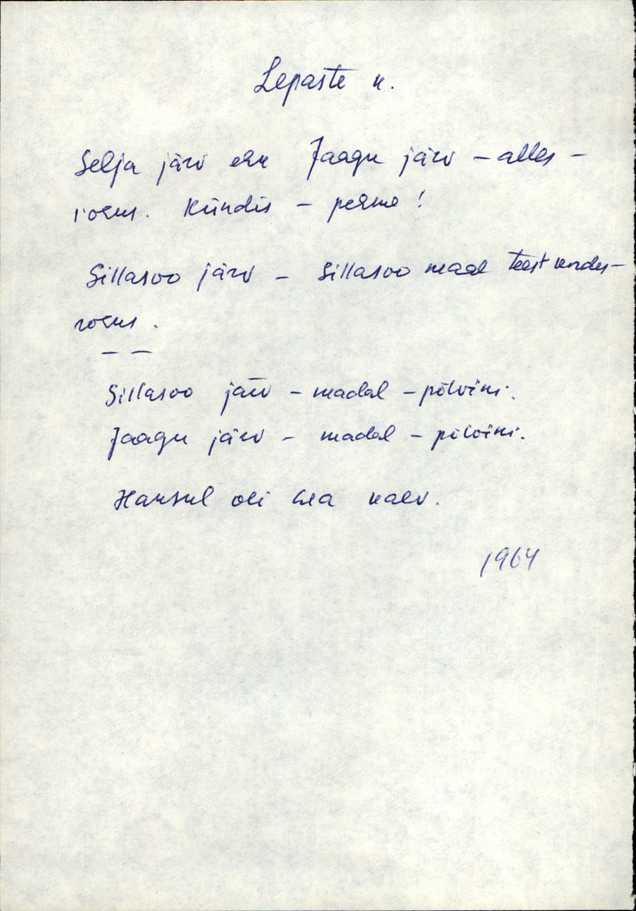 Lepaste k.
Selja järv ehk Jaagu järv – alles –
Kündis – !
Sillasoo järv – Sillasoo maal
— —
Sillasoo järv – madal – põlvini.
Jaagu järv – madal – põlvini.
Hansul oli hea kaev.
1964